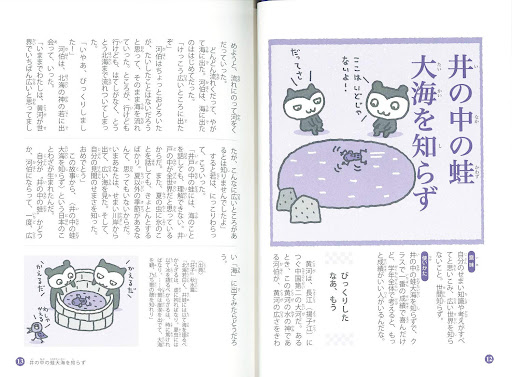 井の中の蛙
大海を知らず
い
なか
かわず
たいかい
し
ここはいどじゃ
ないよ!
だってさ
意味
自分のせまい知識や考えがすべ
てと思いこみ、広い世界を知ら
ないこと。世間知らず。
使いかた
井の中の蛙大海を知らずで、ク
ラスで一番の成績で喜んだけ
ど、学年全体で考えると、もっ
と成績がいい人がいるんだな。
びっくりした
なあ、もう
黄河は、長江(揚子江)に
つぐ中国第二の大河だ。ある
とき、この黄河の水の神であ
る河伯が、黄河の広さをきわ
12
めようと、流れにのって河をく
だっていった。
どんどん流れくだって、やが
て海に出た。河伯は、海に出た
のははじめてだった。
「けっこう広いところに出た
ぞ」
河伯はちょっとおどろいた
が、たいしたことはないだろう
と思って、そのまま海を流れ
ていった。ところが、行けども
行けども、はてしがなく、とう
とう北海まで流れついてしまっ
た。
「いやあ、びっくりしまし
た!」
河伯は、北海の神の若に出
会って、いった。
「いままでわたしは、黄河が世
界でいちばん広いと思ってまし
たが、こんなに広いところがあ
るとは知りませんでしたよ」
すると若は、にっこりわらっ
て、こういった。
「井の中の蛙には、海のこと
を話しても、理解できない。井
戸の中が全世界だと思っている
からだ。また、夏の虫に氷のこ
とを話しても、きょとんとする
ばかり。夏以外の季節があるな
んて、思っていないからだ。
いまあなたは、せまい河から
出て、広い海を見た。そして、
自分の見聞のせまさを知った。
おめでとう」
この故事から、「井の中の蛙
大海を知らず」という日本のこ
とわざが生まれたんだ。
自分が「井の中の蛙」かどう
か、河伯になって、一度、広
い「海」に出てみたらどうだろ
う。
出典
『荘子』秋水編
かえるだ
かえるだ
わらし
かえる
13 井の中の蛙大海を知らず